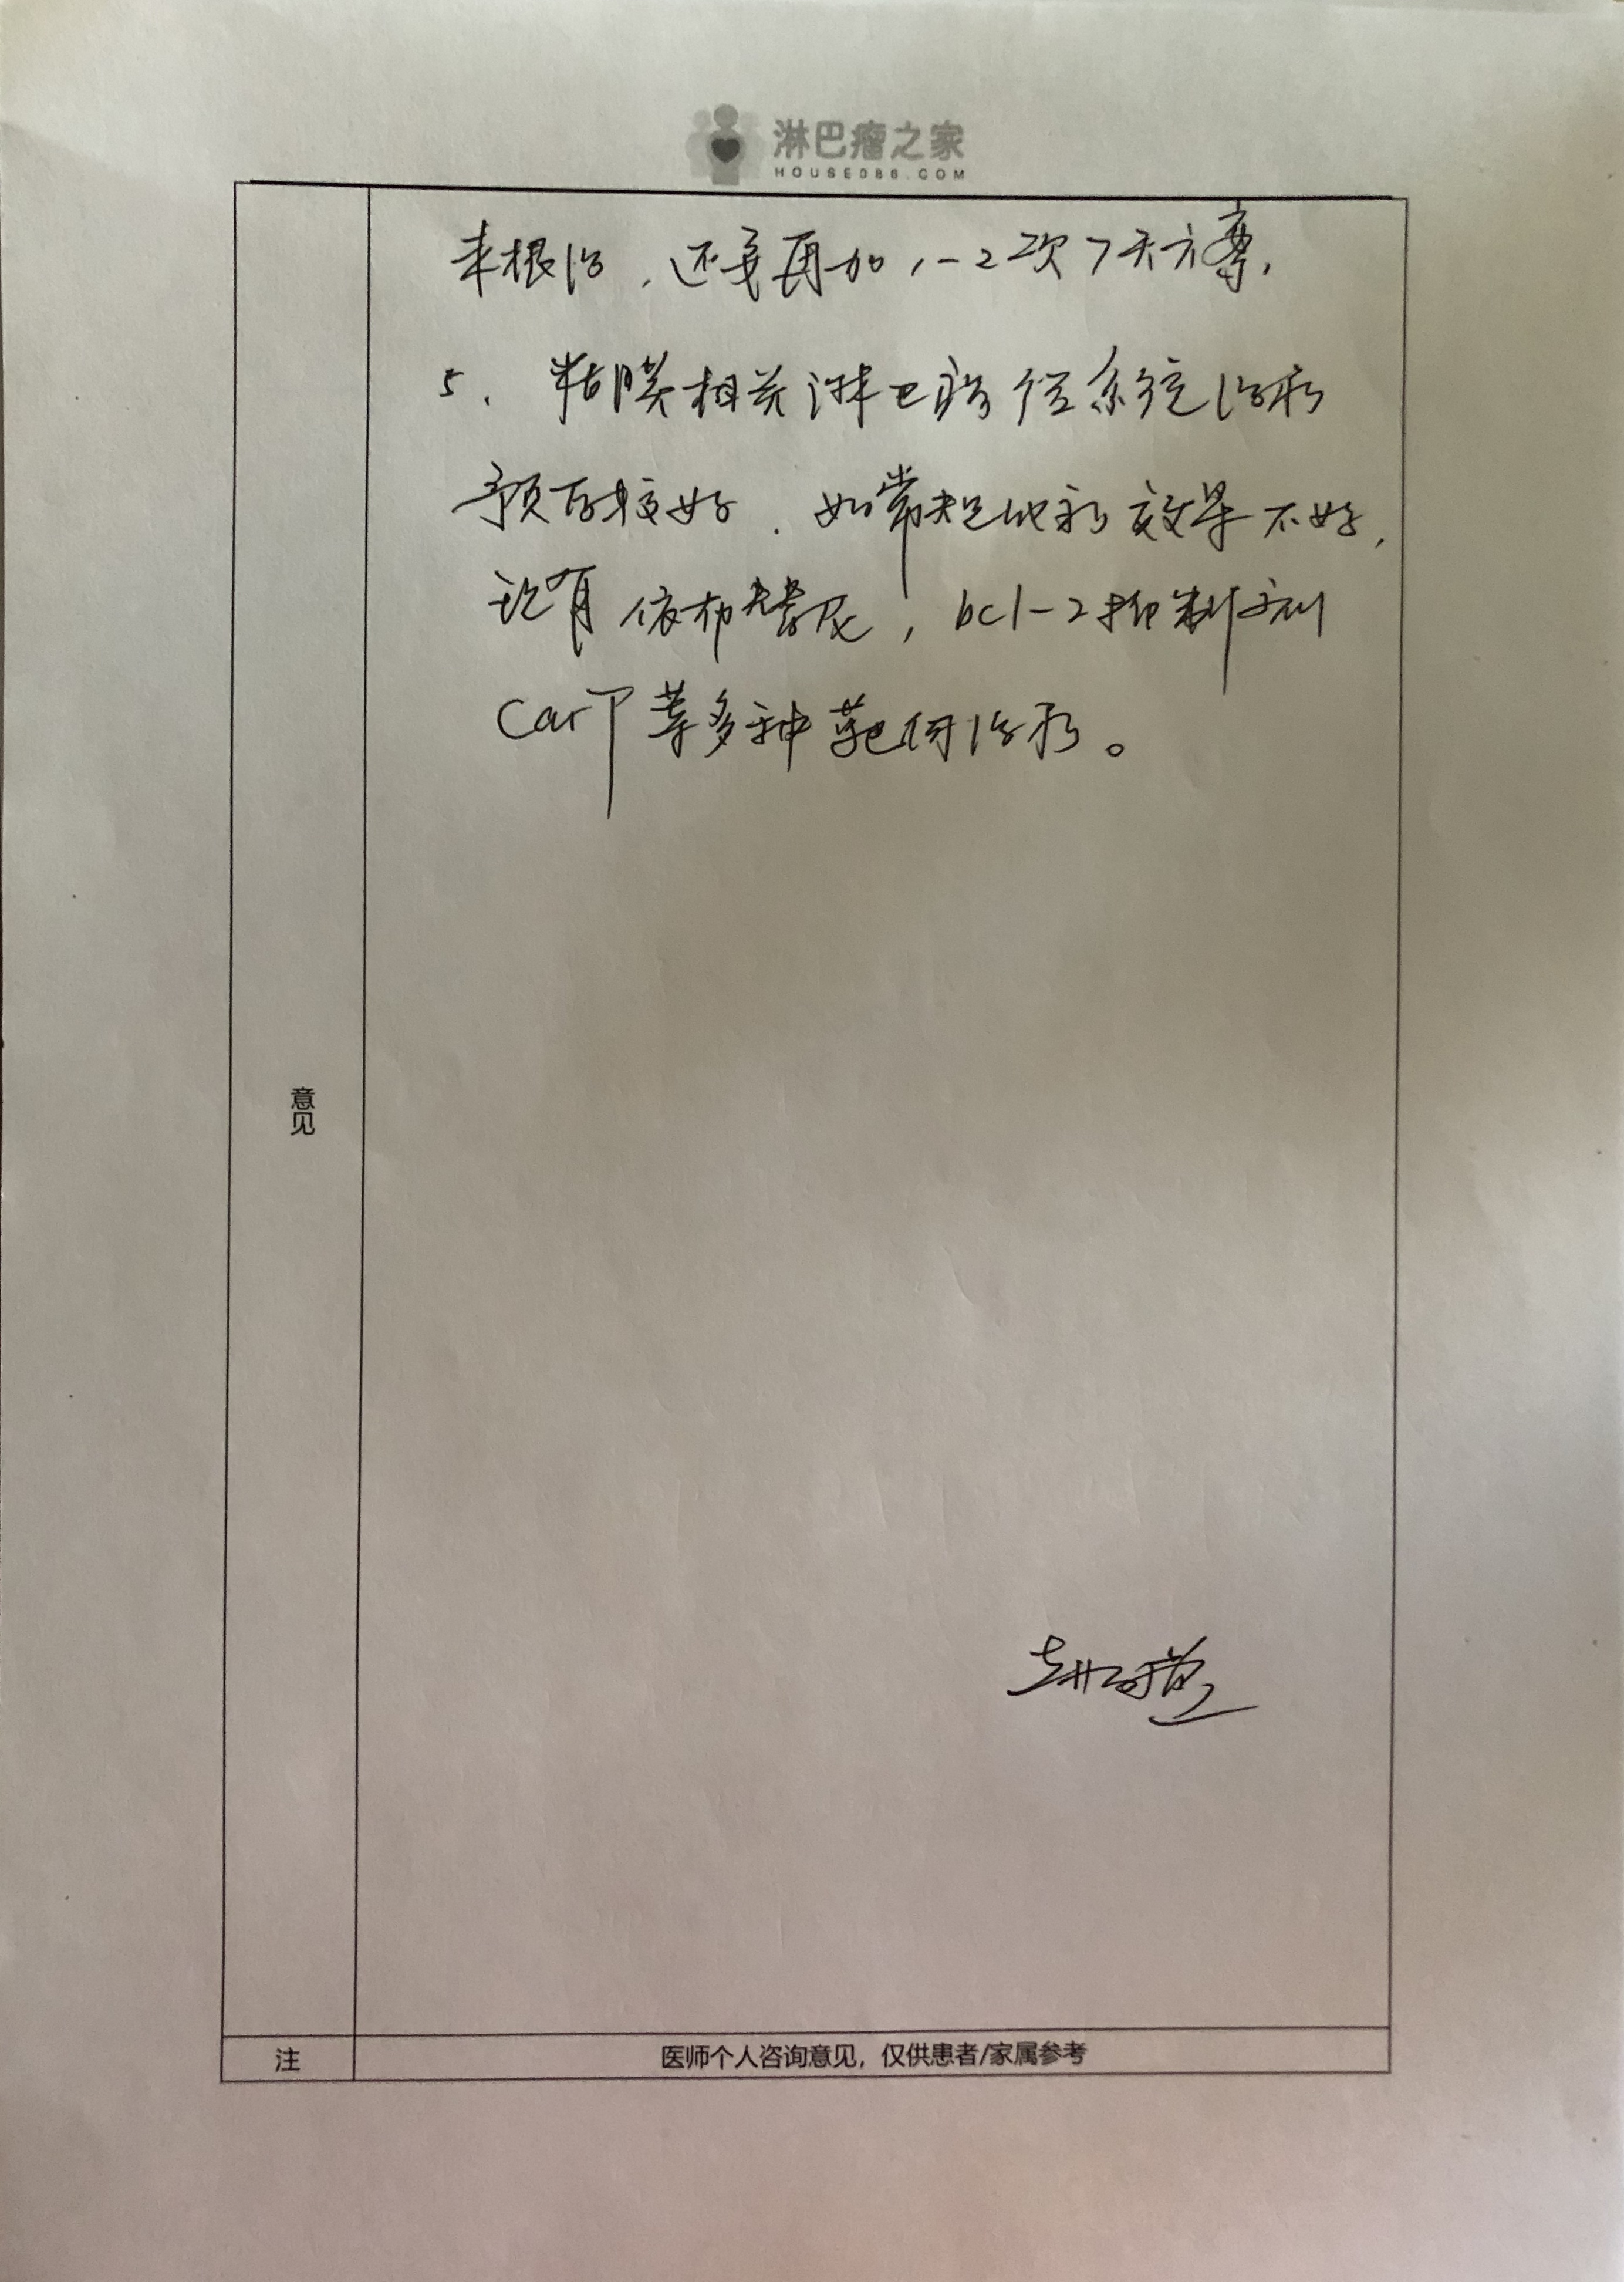 淋巴瘤之家
HOUSE086.COM
未根治，还要再加1-2次7天方案，
5、粘膜相关淋巴瘤经系统治疗
预后较好，如常规化疗效果不好，
还有依布替尼，bcl-2抑制剂
CarT等多种靶向治疗。
意见
注
医师个人咨询意见，仅供患者/家属参考